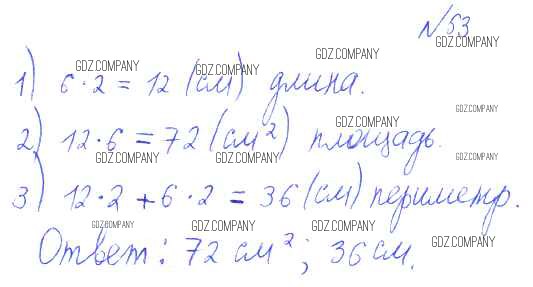 № 53
GDZ.COMPANY
GDZ.COMPANY
GDZ.COMPANY GDZ.COMPANY
1) 6 · 2 = 12 (см) длина.
GDZ.COMPANY
GDZ.COMPANY
2) 12 · 6 = 72 (см²) площадь.
GDZ.COMPANY GDZ.COMPANY GDZ.COMPANY
3) 12 · 2 + 6 · 2 = 36 (см) периметр.
GDZ.COMPANY GDZ.COMPANY GDZ.COMPANY
Ответ: 72 см²; 36 см.
GDZ.COMPANY
GDZ.COMPANY GDZ.COMPANY